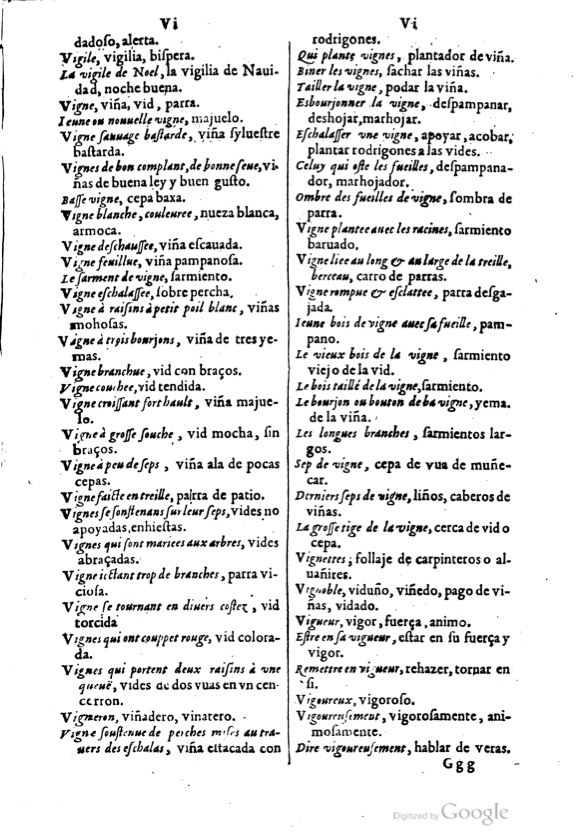 Vi
dadoſo, alerta.
Vigile, vigilia, biſpera.
La vigile de Noel, la vigilia de Naui-
dad, noche buena.
Vigne, viña, vid, parra.
Ieune ou nouuelle vigne, majuelo.
Vigne ſauuage baſtarde, viña ſylueſtre
baſtarda.
Vignes de bon complant, de bonne ſeue, vi-
ñas de buena ley y buen guſto.
Baſſe vigne, cepa baxa.
Vigne blanche, couleuree, nueza blanca,
armoca.
Vigne deſchauſſee, viña eſcauada.
Vigne feuillue, viña pampanoſa.
Le ſarment de vigne, ſarmiento.
Vigne eſchalaſſee, ſobre percha.
Vigne à raiſins à petit poil blanc, viñas
mohoſas.
Vigne à trois bourjons, viña de tres ye-
mas.
Vigne branchue, vid con braços.
Vigne couchee, vid tendida.
Vigne croiſſant fort hault, viña majue-
lo.
Vigne à groſſe ſouche, vid mocha, ſin
braços.
Vigne à peu de ſeps, viña ala de pocas
cepas.
Vigne faicte en treille, parra de patio.
Vignes ſe ſonſtenans ſur leur ſeps, vides no
apoyadas, enhieſtas.
Vignes qui ſont mariees aux arbres, vides
abraçadas.
Vigne iectant trop de branches, parra vi-
cioſa.
Vigne ſe tournant en diuers coſtez, vid
torcida
Vignes qui ont couppet rouge, vid colora-
da.
Vignes qui portent deux raiſins à vne
queuë, vides de dos vuas en vn cen-
cerron.
Vigneron, viñadero, vinatero.
Vigne ſouſtenue de perches miſes au tra-
uers des eſchalas, viña ettacada con
Vi
rodrigones.
Qui plante vignes, plantador de viña.
Biner les vignes, ſachar las viñas.
Tailler la vigne, podar la viña.
Esbourjonner la vigne, deſpampanar,
deshojar, marhojar.
Eſchalaſſer vne vigne, apoyar, acobar,
plantar rodrigones a las vides.
Celuy qui oſte les fueilles, deſpampana-
dor, marhojador.
Ombre des fueilles de vigne, ſombra de
parra.
Vigne plantee auec les racines, ſarmiento
baruado.
Vigne liee au long & au large de la treille,
berceau, carro de parras.
Vigne rompue & eſclattee, parra deſga-
jada.
Ieune bois de vigne auec ſa fueille, pam-
pano.
Le vieux bois de la vigne, ſarmiento
viejo de la vid.
Le bois taillé de la vigne, ſarmiento.
Le bourjon ou bouton de la vigne, yema.
de la viña.
Les longues branches, ſarmientos lar-
gos.
Sep de vigne, cepa de vua de muñe-
car.
Derniers ſeps de vigne, liños, caberos de
viñas.
La groſſe tige de la vigne, cerca de vid o
cepa.
Vignettes, follaje de carpinteros o al-
uañires.
Vignoble, viduño, viñedo, pago de vi-
ñas, vidado.
Vigueur, vigor, fuerça, animo.
Eſtre en ſa vigueur, eſtar en ſu fuerça y
vigor.
Remettre en vigueur, rehazer, tornar en
ſi.
Vigoureux, vigoroſo.
Vigoureuſement, vigoroſamente, ani-
moſamente.
Dire vigoureuſement, hablar de veras.
Ggg
Digitized by Google